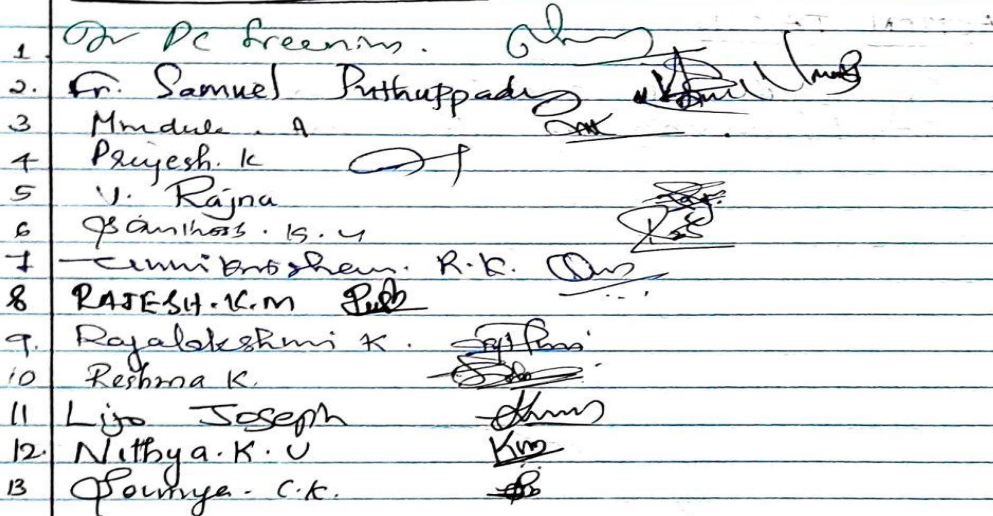 1 Dr PC Sreenivas.
2. Fr. Samuel Puthuppady
3 Mrudula . A
4 Preyesh. k
5 V. Rajna
6 Santhosh . K. U
7 Unnikrishnan. R.K.
8 RAJESH.K.M
9. Rajalakshmi K.
10 Reshma K.
11 Lijo Joseph
12. Nithya. K. U
13 Soumya. C.K.